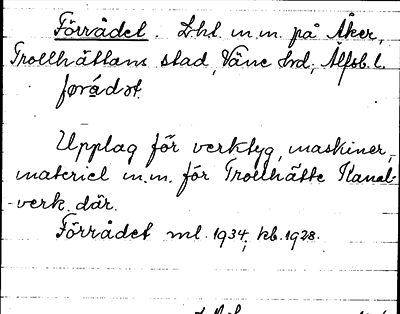 Förrådet. Lht. m.m. på Åker,
Trollhättans stad, Väne hd, Älfsb. l.
förådət
Upplag för verktyg, maskiner,
materiel m.m. för Trollhätte Kanal-
-verk där.
Förrådet ml. 1934; kb. 1928.